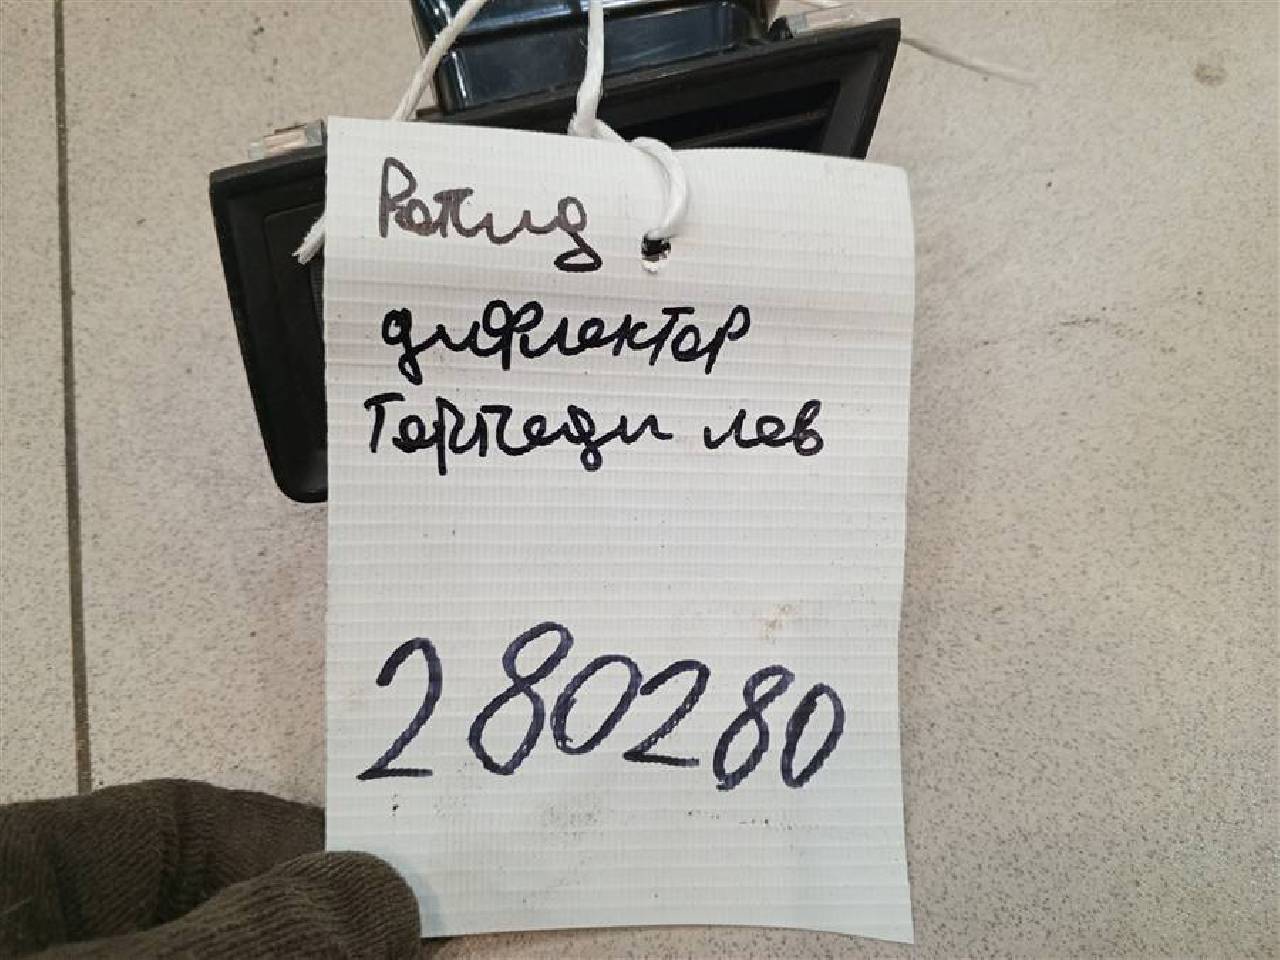 Рапид
дифлектор
Торпеди лев
280280